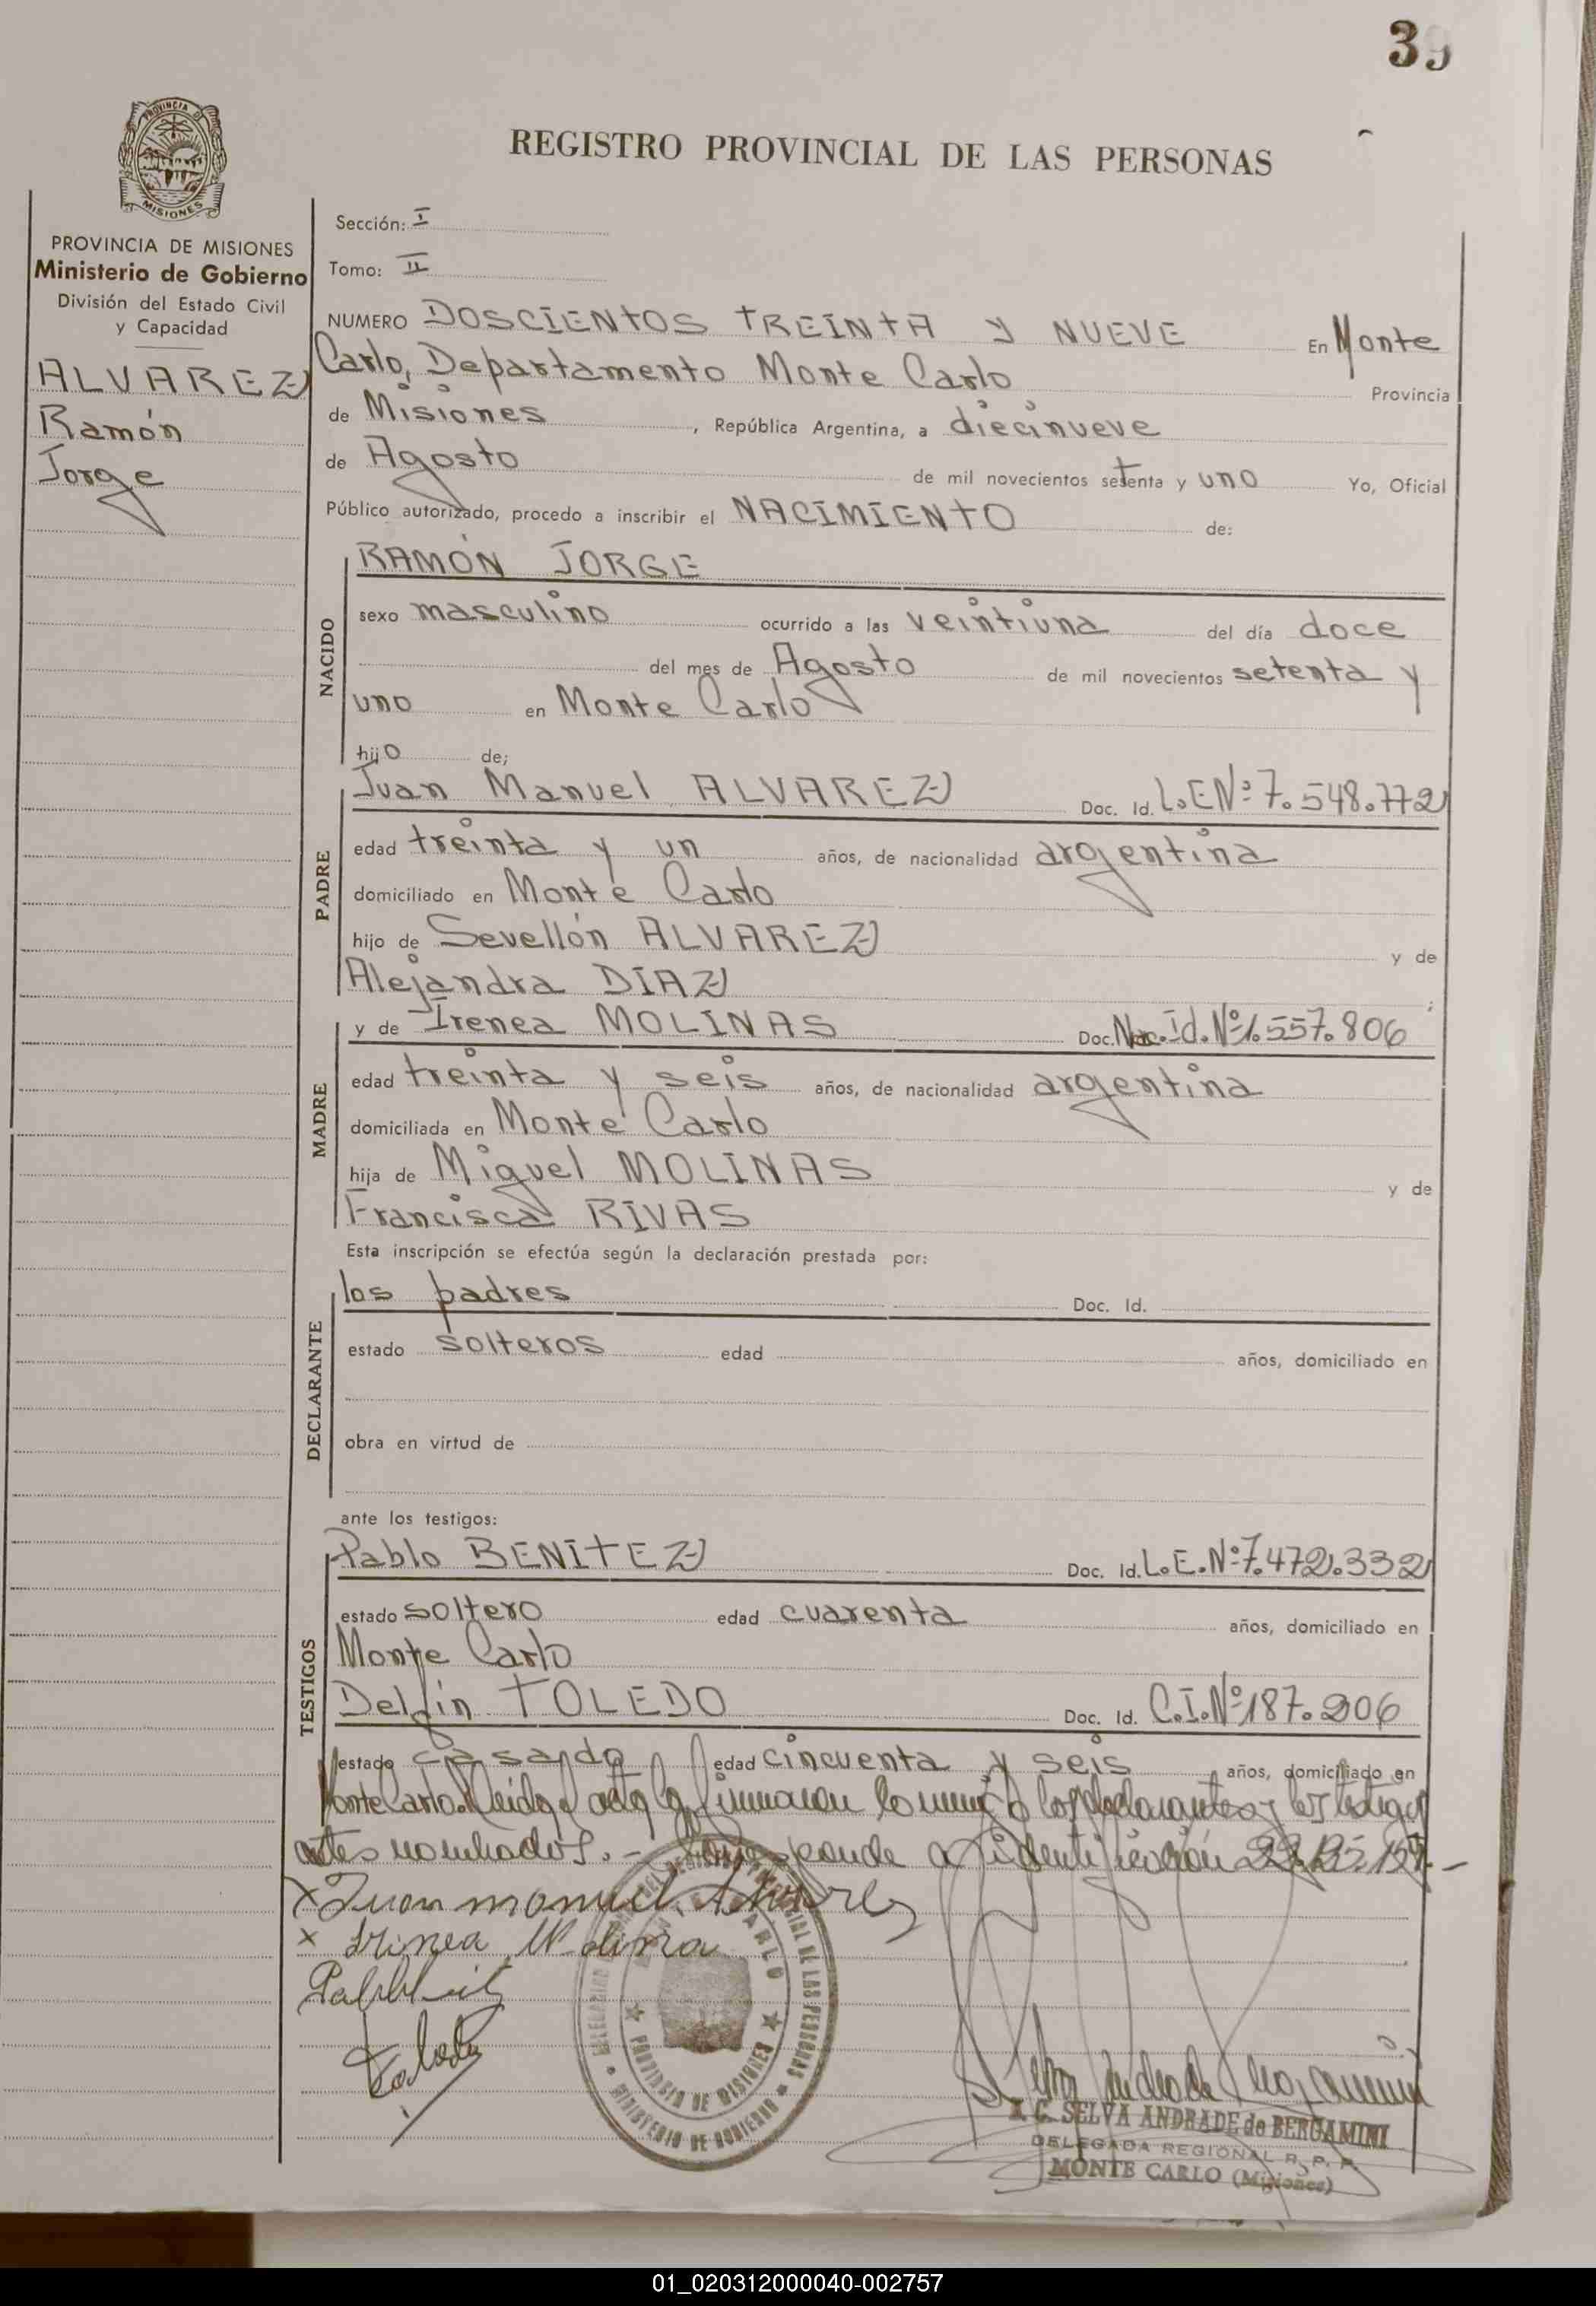 39
REGISTRO PROVINCIAL DE LAS PERSONAS
PROVINCIA
MISIONES
PROVINCIA DE MISIONES
Ministerio de Gobierno
División del Estado Civil
y Capacidad
ALVAREZ
Ramón
Jorge
Sección: I
Tomo: II
NUMERO DOSCIENTOS TREINTA Y NUEVE En Monte
Carlo, Departamento Monte Carlo Provincia
de Misiones, República Argentina, a diecinueve
de Agosto de mil novecientos setenta y uno Yo, Oficial
Público autorizado, procedo a inscribir el NACIMIENTO de:
NACIDO
RAMÓN JORGE
sexo masculino ocurrido a las veintiuna del día doce
del mes de Agosto de mil novecientos setenta y
uno en Monte Carlo
hijo de;
PADRE
Juan Manuel ALVAREZ Doc. Id. L.E.Nº 7.548.772
edad treinta y un años, de nacionalidad argentina
domiciliado en Monte Carlo
hijo de Sevellón ALVAREZ y de
Alejandra DIAZ
MADRE
y de Irenea MOLINAS Doc. Id. Nº 1.557.806
edad treinta y seis años, de nacionalidad argentina
domiciliada en Monte Carlo
hija de Miguel MOLINAS y de
Francisca RIVAS
Esta inscripción se efectúa según la declaración prestada por:
DECLARANTE
los padres Doc. Id.
estado solteros edad años, domiciliado en
obra en virtud de
ante los testigos:
TESTIGOS
Pablo BENITEZ Doc. Id. L.E.Nº 7.472.332
estado soltero edad cuarenta años, domiciliado en
Monte Carlo
Delfín TOLEDO Doc. Id. C.I.Nº 187.206
estado casado edad cincuenta y seis años, domiciliado en
Monte Carlo. Leída el acta la firmaron conmigo los declarantes y los testigos
antes nombrados.- Corresponde a identificación
Juan manuel Alvarez
Irinea Molina
Toledo
DELEGACION REGISTRO PROVINCIAL DE LAS PERSONAS
MONTE CARLO
PROVINCIA DE MISIONES
MINISTERIO DE GOBIERNO
SELVA ANDRADE de BERGAMINI
DELEGADA REGIONAL R. P. P.
MONTE CARLO (Misiones)
01_020312000040-002757